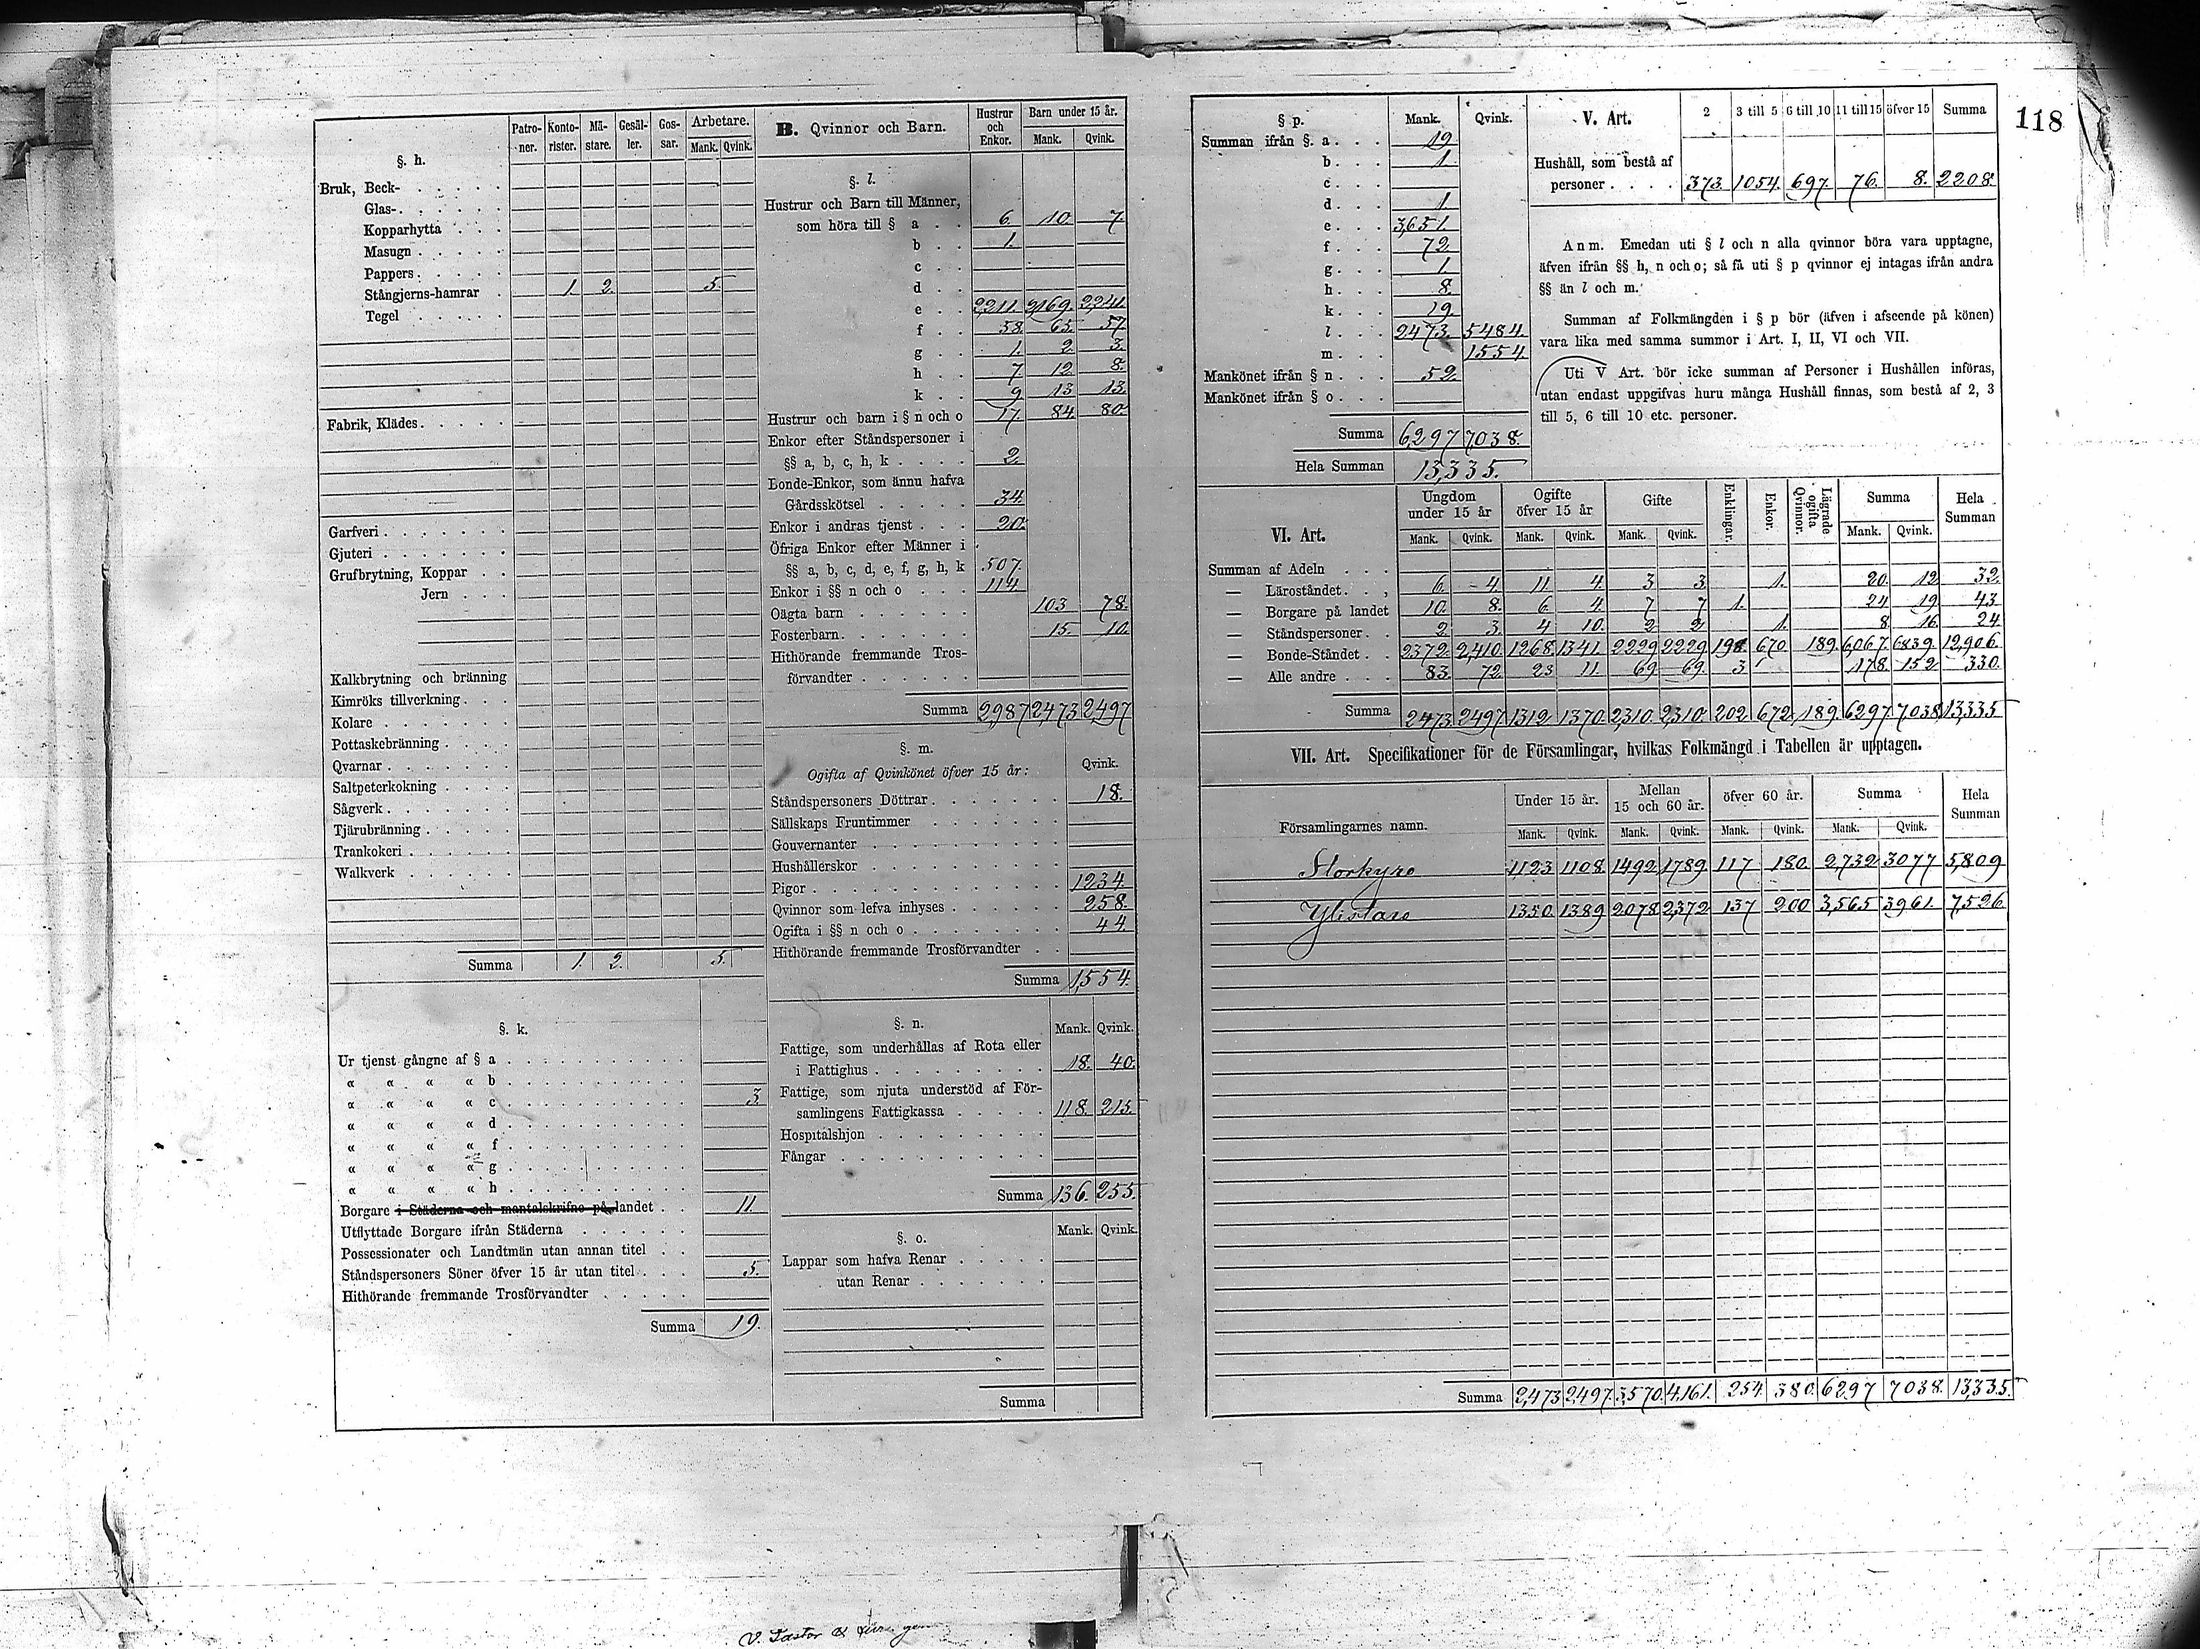 118
§. h.
Patro-ner. Konto-rister. Mä-stare. Gesäl-ler. Gos-sar. Arbetare. Mank. Qvink.
Bruk, Beck-
Glas-
Kopparhytta
Masugn
Pappers
Stångjerns-hamrar 1. 2. 5.
Tegel
Fabrik, Klädes
Garfveri
Gjuteri
Grufbrytning, Koppar
Jern
Kalkbrytning och bränning
Kimröks tillverkning
Kolare
Pottaskebränning
Qvarnar
Saltpeterkokning
Sågverk
Tjärubränning
Trankokeri
Walkverk
Summa 1. 2. 5.
§. k.
Ur tjenst gångne af § a
« « « « b
« « « « c 3.
« « « « d
« « « « f
« « « « g
« « « « h
Borgare i Städerna och mantalskrifne på landet 11.
Utflyttade Borgare ifrån Städerna
Possessionater och Landtmän utan annan titel
Ståndspersoners Söner öfver 15 år utan titel 5.
Hithörande fremmande Trosförvandter
Summa 19.
B. Qvinnor och Barn.
Hustrur och Enkor. Barn under 15 år. Mank. Qvink.
§. l.
Hustrur och Barn till Männer,
som höra till § a 6. 10. 7.
b 1.
c
d
e 2,211. 2,169. 2,241.
f 58. 65. 57.
g 1. 2. 3.
h 7. 12. 8.
k 9. 13. 13.
Hustrur och barn i § n och o 17. 84. 80.
Enkor efter Ståndspersoner i
§§ a, b, c, h, k 2.
Bonde-Enkor, som ännu hafva
Gårdsskötsel 34.
Enkor i andras tjenst 20.
Öfriga Enkor efter Männer i
§§ a, b, c, d, e, f, g, h, k 507.
Enkor i §§ n och o 114.
Oägta barn 103 78.
Fosterbarn 15. 10.
Hithörande fremmande Tros-
förvandter
Summa 2,987 2473 2497
§. m.
Ogifta af Qvinkönet öfver 15 år: Qvink.
Ståndspersoners Döttrar 18.
Sällskaps Fruntimmer
Gouvernanter
Hushållerskor
Pigor 1234.
Qvinnor som lefva inhyses 258.
Ogifta i §§ n och o 44.
Hithörande fremmande Trosförvandter
Summa 1,554.
§. n. Mank. Qvink.
Fattige, som underhållas af Rota eller
i Fattighus 18. 40.
Fattige, som njuta understöd af För-
samlingens Fattigkassa 118. 215.
Hospitalshjon
Fångar
Summa 136. 255.
§. o. Mank. Qvink.
Lappar som hafva Renar
utan Renar
Summa
§ p. Mank. Qvink.
Summan ifrån §. a 19
b 1.
c
d 1
e 3,651.
f 72.
g 1.
h 8.
k 19.
l 2473. 5484.
m 1554
Mankönet ifrån § n 52.
Mankönet ifrån § o
Summa 6,297 7,038.
Hela Summan 13,335.
V. Art. 2 3 till 5 6 till 10 11 till 15 öfver 15 Summa
Hushåll, som bestå af
personer 373. 1054. 697. 76. 8. 2208.
Anm. Emedan uti § l och n alla qvinnor böra vara upptagne,
äfven ifrån §§ h, n och o; så få uti § p qvinnor ej intagas ifrån andra
§§ än l och m.
Summan af Folkmängden i § p bör (äfven i afseende på könen)
vara lika med samma summor i Art. I, II, VI och VII.
Uti V Art. bör icke summan af Personer i Hushållen införas,
utan endast uppgifvas huru många Hushåll finnas, som bestå af 2, 3
till 5, 6 till 10 etc. personer.
VI. Art. Ungdom under 15 år Ogifte öfver 15 år Gifte Enklingar. Enkor. Lägrade ogifta Qvinnor. Summa Hela Summan
Mank. Qvink. Mank. Qvink. Mank. Qvink. Mank. Qvink.
Summan af Adeln
— Läroståndet 6. 4. 11 4. 3 3 1. 20. 12 32.
— Borgare på landet 10. 8. 6 4. 7 7 1. 24 19 43
— Ståndspersoner 2. 3. 4 10. 2 2 1. 8. 16. 24
— Bonde-Ståndet 2372. 2,410. 1268. 1341. 2229 2229 198 670. 189. 6,067. 6839. 12,906.
— Alle andre 83. 72 23 11. 69 69. 3 178 152. 330.
Summa 2473 2497 1312. 1370. 2,310. 2,310. 202. 672. 189. 6297 7038 13,335
VII. Art. Specifikationer för de Församlingar, hvilkas Folkmängd i Tabellen är upptagen.
Församlingarnes namn. Under 15 år. Mellan 15 och 60 år. öfver 60 år. Summa Hela Summan
Mank. Qvink. Mank. Qvink. Mank. Qvink. Mank. Qvink.
Storkyro 1,123 1108. 1492 1789. 117 180. 2,732 3077 5,809
Ylistaro 1350. 1389 2078. 2,372 137 200 3,565 3961. 7,526
Summa 2,473 2,497. 3,570. 4,161. 254. 380. 6297 7038. 13,335.